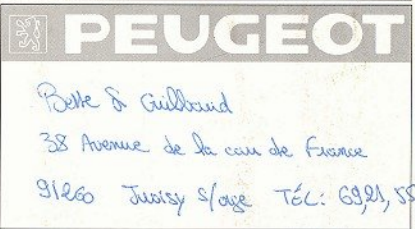 PEUGEOT
Guibbaud
38 Avenue de la cour de France
91260 Juvisy s/orge TÉL: 69,21, 55